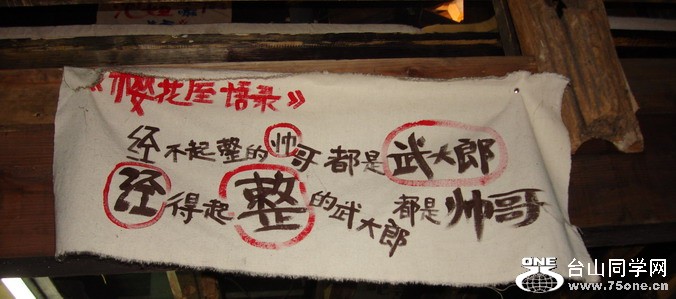 《樱花屋语录》
经不起整的帅哥都是武大郎
经得起整的武大郎都是帅哥
ONE 台山同学网
www.75one.cn